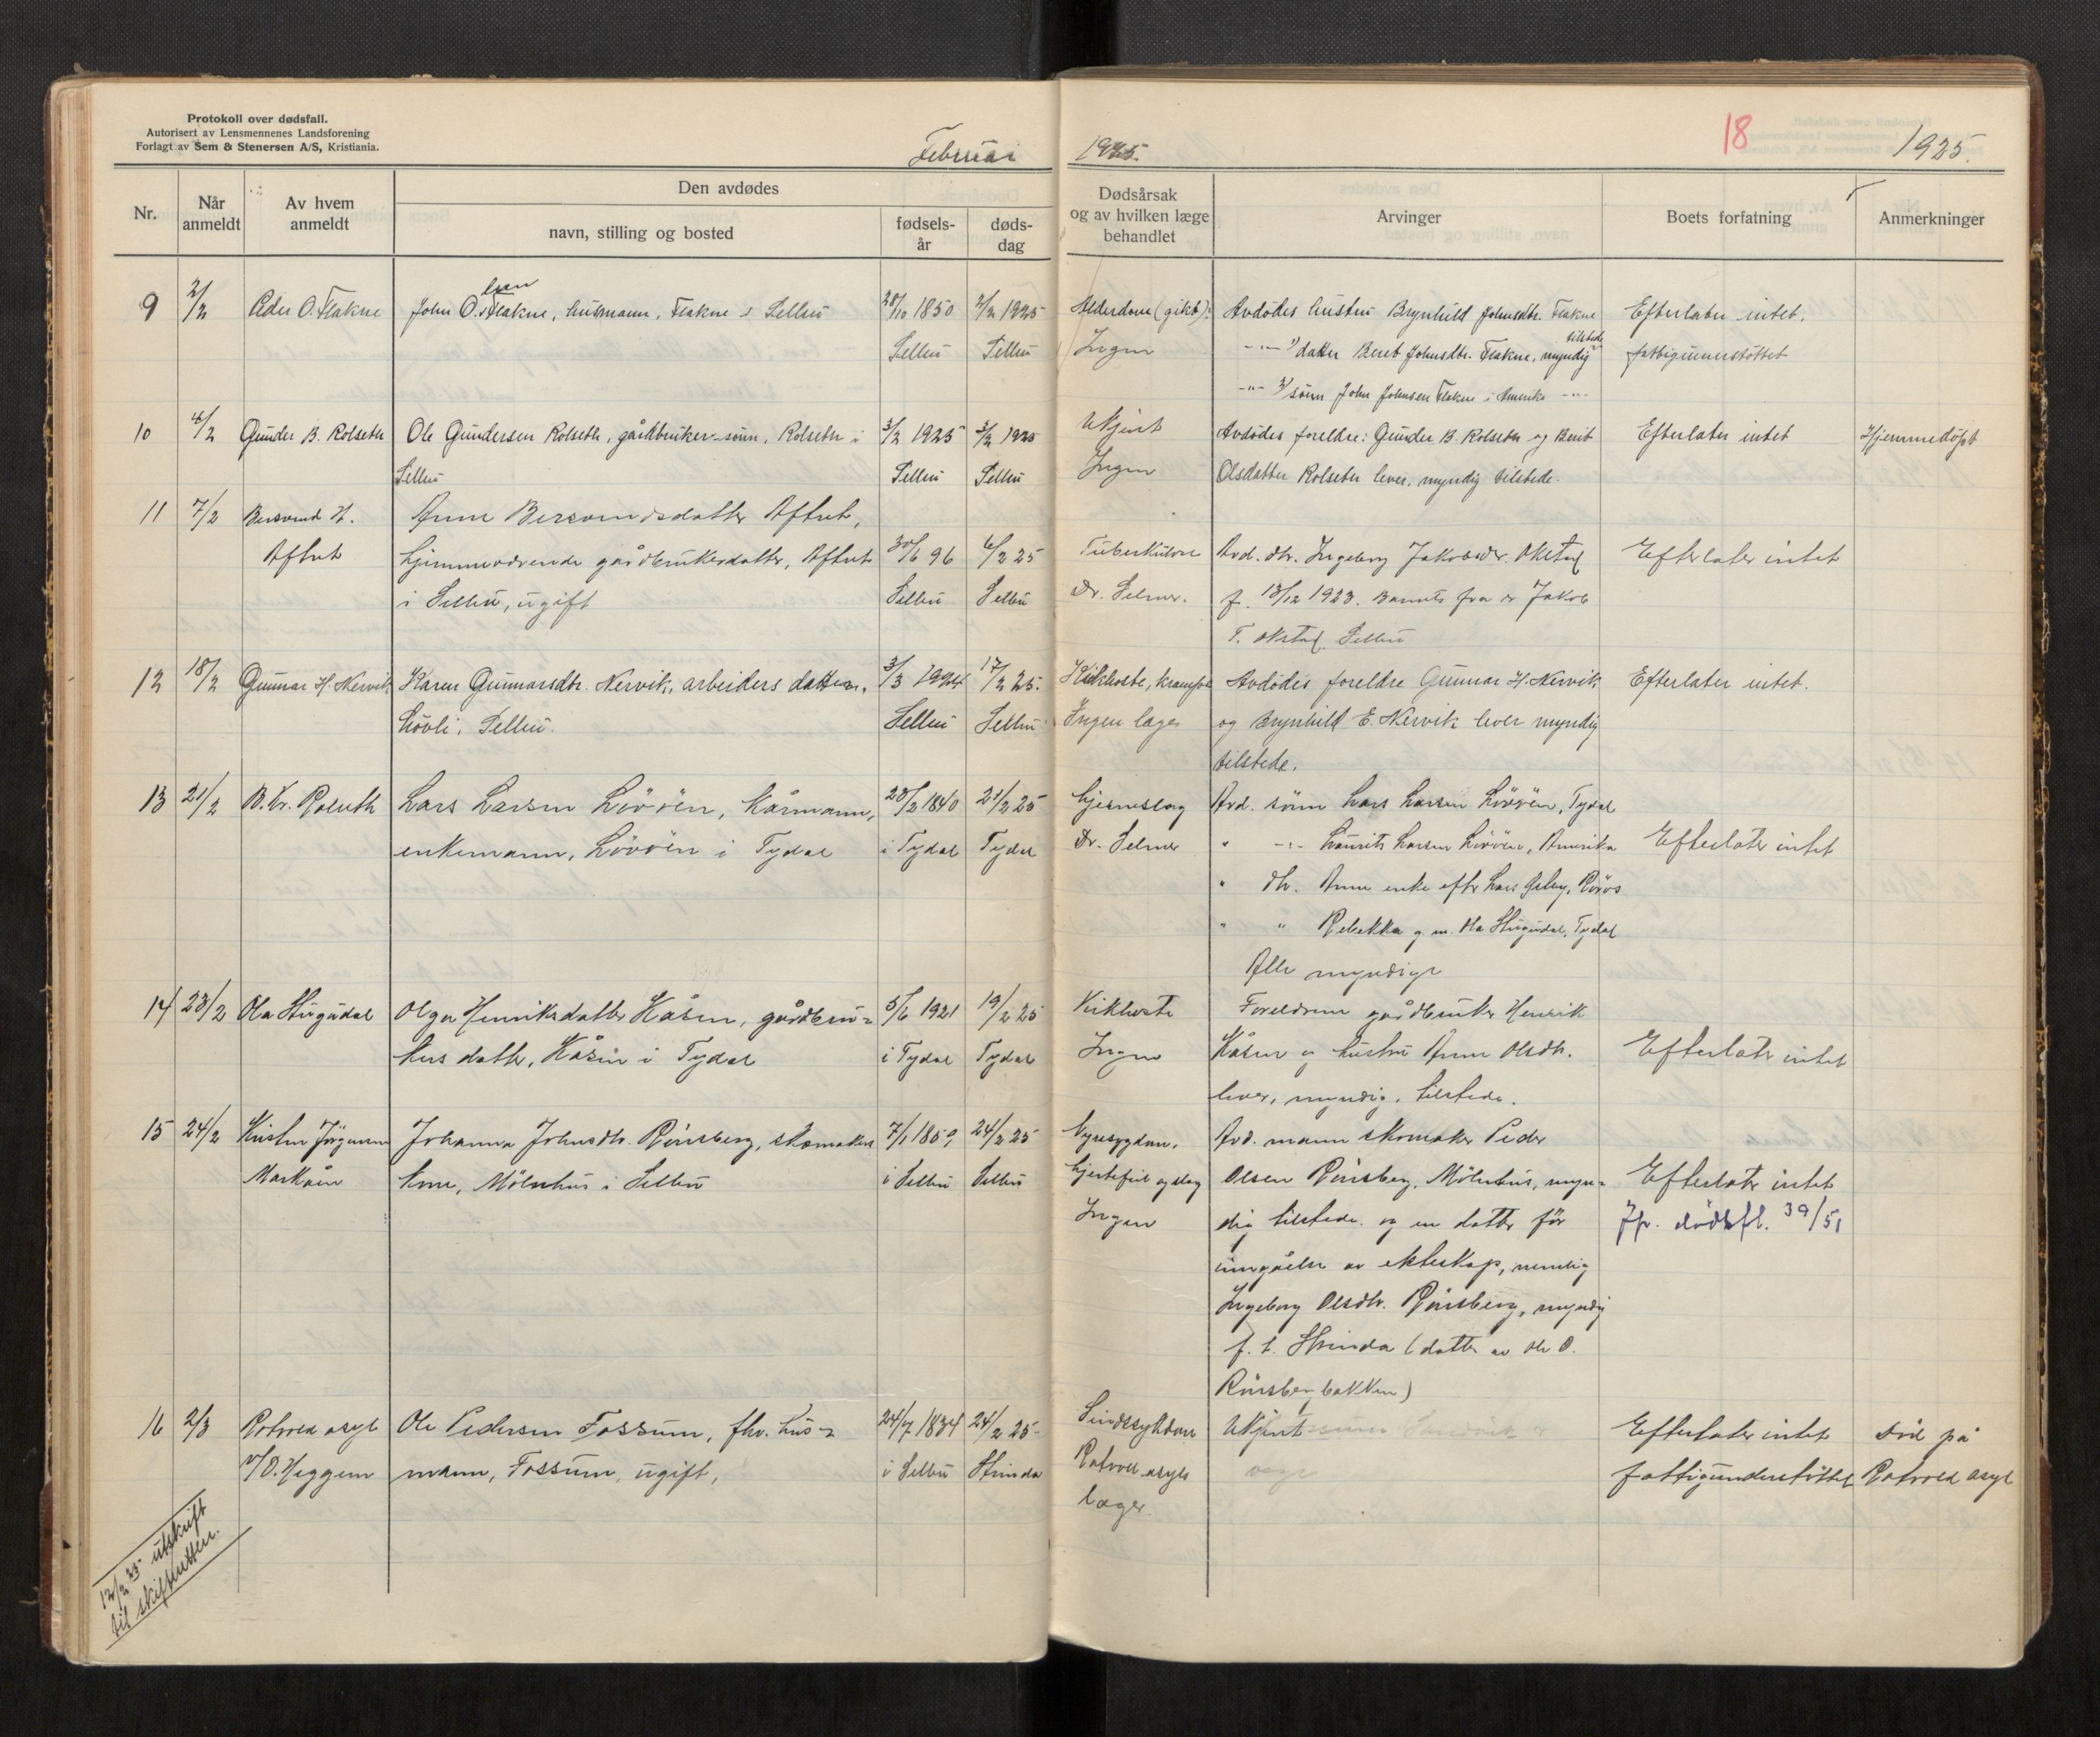 Protokoll over dødsfall.
Autorisert av Lensmennenes Landsforening
Forlagt av Sem & Stenersen A/S, Kristiania.
Februar 1925.
18
1925.
Nr.
Når anmeldt
Av hvem anmeldt
Den avdødes
navn, stilling og bosted
fødsels-år
døds-dag
Dødsårsak og av hvilken læge behandlet
Arvinger
Boets forfatning
Anmerkninger
9 2/2 Peder O. Flakne John Olsen Flakne, husmann, Flakne i Selbu 28/10 1850 2/2 1925 Alderdom (gikt) Avdødes hustru Brynhild Johnsdtr. Flakne Efterlater intet.
Selbu Selbu Ingen -"- 1/ datter Beret Johnsdtr. Flakne, myndig tilstede fattigunnerstøttet
-"- 2/ sønn John Johnsen Flakne i Amerika -"-
10 4/2 Gunder B. Rolseth Ole Gundersen Rolseth, gårdbruker-sønn, Rolseth i 3/2 1925 3/2 1925 Ukjent Avdødes foreldre: Gunder B. Rolseth og Berit Efterlater intet Hjemmedøpt
Selbu Selbu Selbu Ingen Olsdatter Rolseth lever, myndig tilstede.
11 7/2 Bersvend H. Anne Bersvendsdatter Aftret,
Aftret hjemmeværende gårdbrukerdatter, Aftret 30/6 96 6/2 25 Tuberkulose Avd. dtr. Ingeborg Jakobsdr. Okstad Efterlater intet
i Selbu, ugift Selbu Selbu Dr. Selmer. f. 13/12 1923. Barnets far er Jakob
T. Okstad, Selbu
12 18/2 Gunnar H. Nervik Karen Gunnarsdtr. Nervik, arbeiders datter, 3/3 1924 17/2 25. Kikhoste, krampe Avdødes foreldre Gunnar H. Nervik Efterlater intet.
Løvli, Selbu. Selbu Selbu Ingen læge og Brynhild E. Nervik lever myndig
tilstede.
13 21/2 B. Kr. Rolseth Lars Larsen Løvøen, kårmann, 28/2 1840 21/2 25 Hjerneslag Avd. sønn Lars Larsen Løvøen, Tydal
enkemann, Løvøen i Tydal i Tydal Tydal Dr. Selmer " -"- Laurits Larsen Løvøen, Amerika Efterlater intet
" dtr. Anne enke efter Lars Galey, Røros
" " Rebekka g. m. Ola Stugudal, Tydal
Alle myndige
14 23/2 Ola Stugudal Olga Henriksdatter Kåsen, gårdbru- 5/6 1921 19/2 25 Kikhoste Foreldrene gårdbruker Henrik
kers datter, Kåsen i Tydal i Tydal Tydal Ingen Kåsen og hustru Anne Olsdtr. Efterlater intet
lever, myndig, tilstede.
15 24/2 Kristen Jørgensen Johanna Johnsdtr. Rønsberg, skomakers 7/1 1859 24/2 25 Nyresygdom, Avd. mann skomaker Peder
Markåen kone, Mølnhus i Selbu i Selbu Selbu hjertefeil og slag Olsen Rønsberg, Mølnhus, myn- Efterlater intet
Ingen dig tilstede og en datter før Jfr. dødsfl. 39/51
inngåelse av ekteskap, nemlig
Ingeborg Olsdtr. Rønsberg, myndig
f. t. Strinda (datter av Ole O.
Rønsbergbakken)
16 2/3 Rotvold asyl Ole Pedersen Fossum, fhv. hus- 24/7 1834 24/2 25 Sindssykdom Ukjent Efterlater intet Død på
v/ O. Heggem mann, Fossum, ugift, i Selbu Strinda Rotvoll asyls fattigunderstøttet Rotvold asyl
læge.
12/2 25 utskrift
til skifteretten.